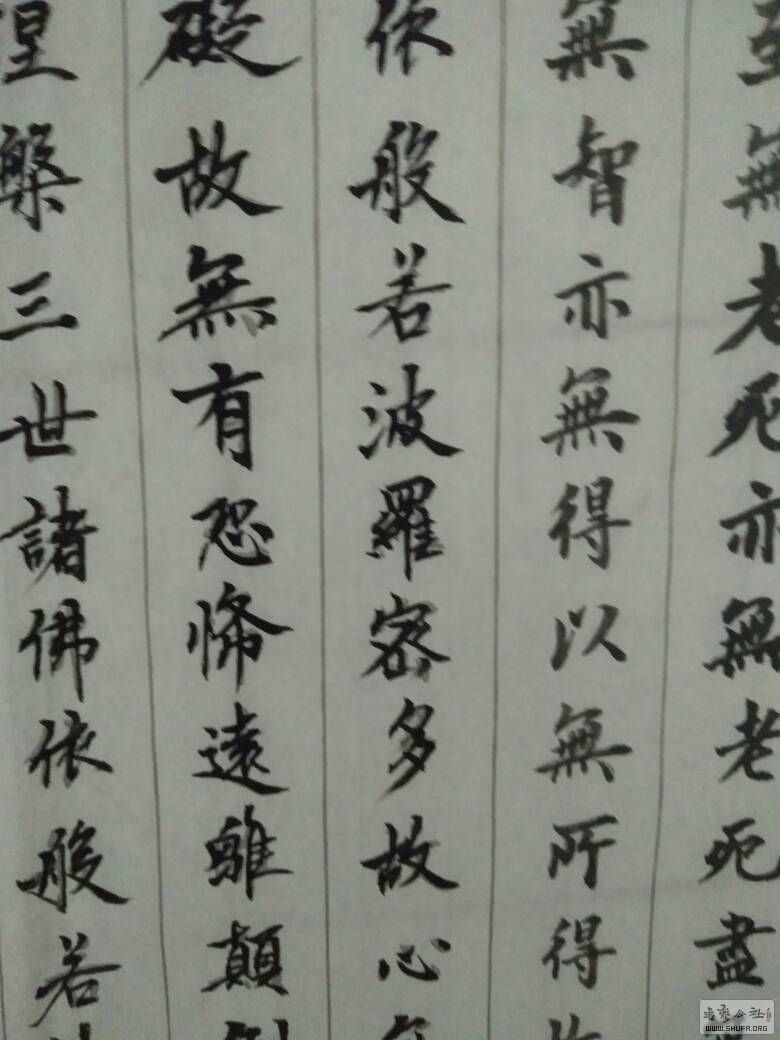 至無老死亦無老死盡
無智亦無得以無所得故
依般若波羅密多故心無
礙故無有恐怖遠離顛倒
槃三世諸佛依般若
书艺公社
WWW.SHUFA.ORG